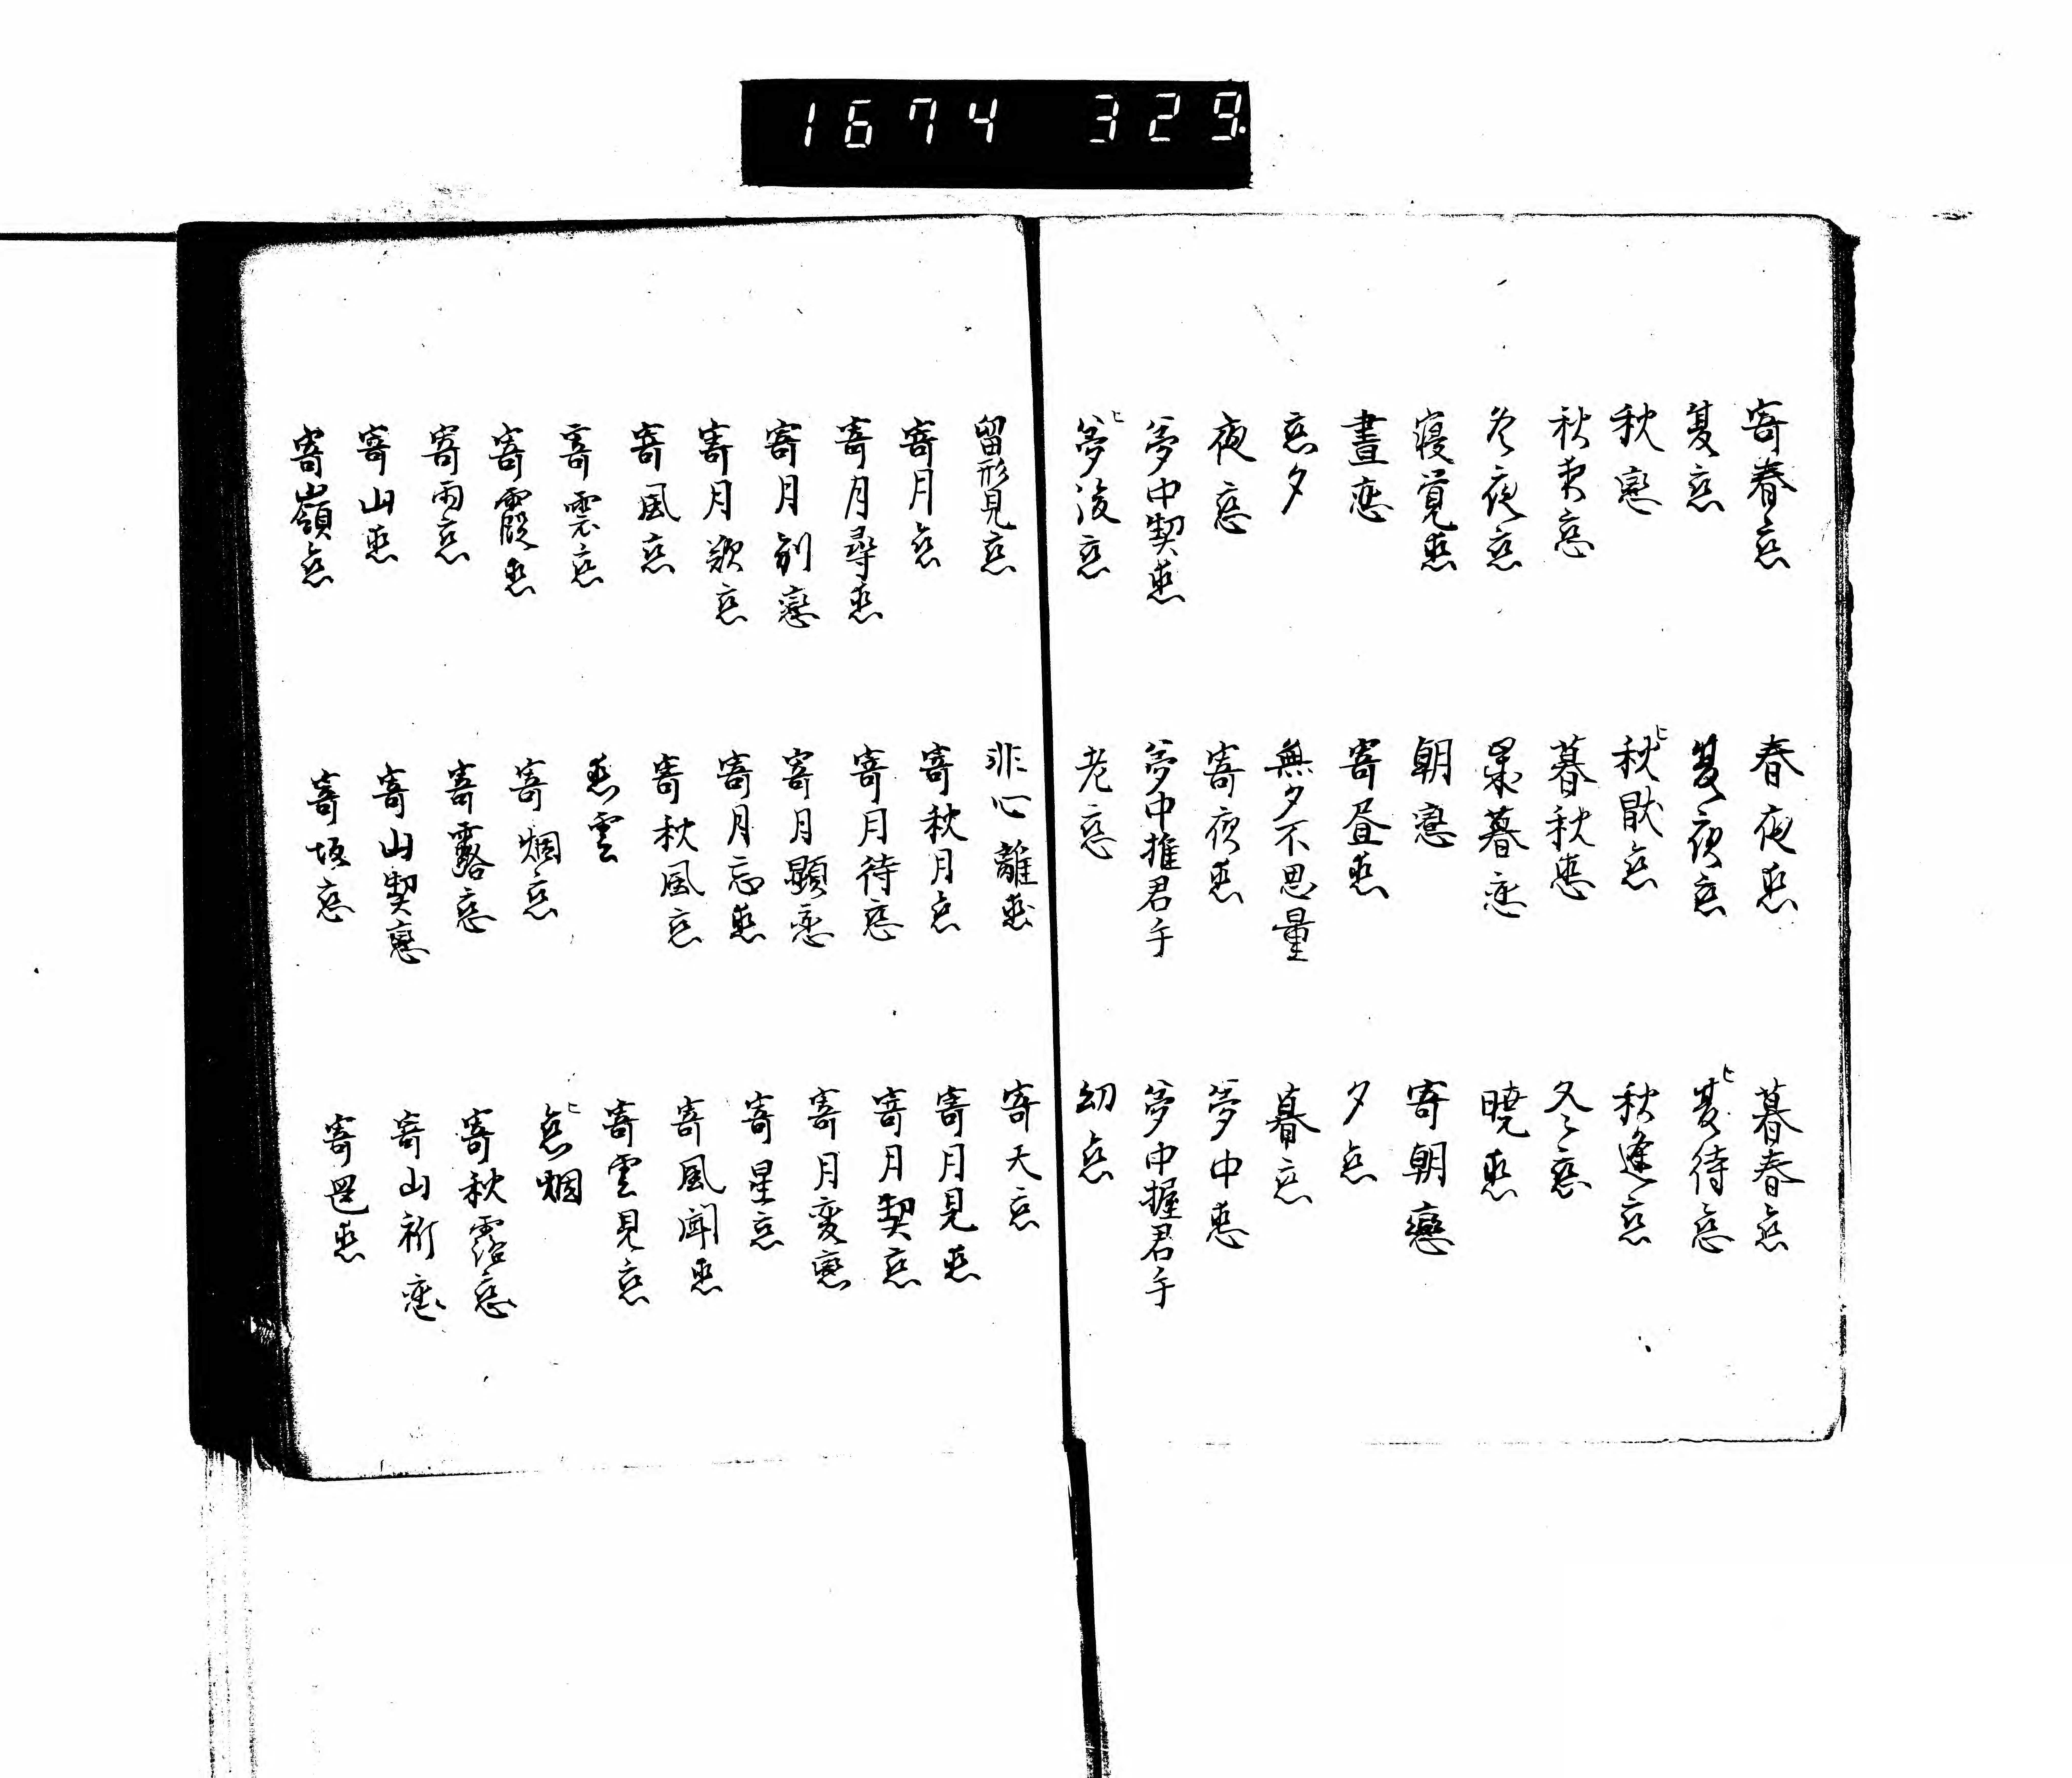 1674 329.
寄春恋 春夜恋 暮春恋
夏恋 夏夜恋 夏待恋
秋戀 秋厭恋 秋逢恋
暮秋恋 冬恋
冬夜恋 歳暮恋 暁恋
寝覚恋 朝戀 寄朝戀
晝恋 寄昼恋 夕恋
恋夕 無夕不思量 暮恋
夜恋 寄夜恋 夢中恋
夢中契恋 夢中推君手 夢中握君手
夢後恋 老恋 幼恋
留形見恋 非心離恋 寄天恋
寄月恋 寄秋月恋 寄月見恋
寄月尋恋 寄月待恋 寄月契恋
寄月別戀 寄月顕恋 寄月変戀
寄月歎恋 寄月忘恋 寄星恋
寄風恋 寄秋風恋 寄風聞恋
寄雲恋 恋雲 寄雲見恋
寄霞恋 寄烟恋 恋烟
寄雨恋 寄露恋 寄秋露恋
寄山恋 寄山契戀 寄山祈恋
寄嶺恋 寄坂恋